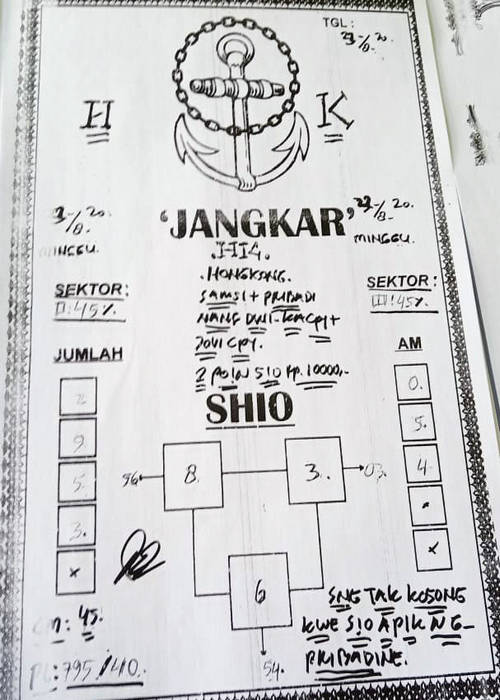 TGL:
23/8. 20.
H K
'JANGKAR'
23/8- 20.
MINGGU.
HK.
.HONGKONG.
SEKTOR:
SEKTOR:
II:45%
III:45%.
SAMSI + PRIBADI
NANG DWI-KACPI+
JOVI CPY.
2 POIN SIO Rp. 10000,-
JUMLAH
AM
SHIO
2
9
5
3.
x
0.
5.
4
x
96
8.
3.
03.
6
54.
CM: 45.
PL: 795/40.
SNG TAK KOSONG
KWE SIO APIK NG-
PRIBADINE.